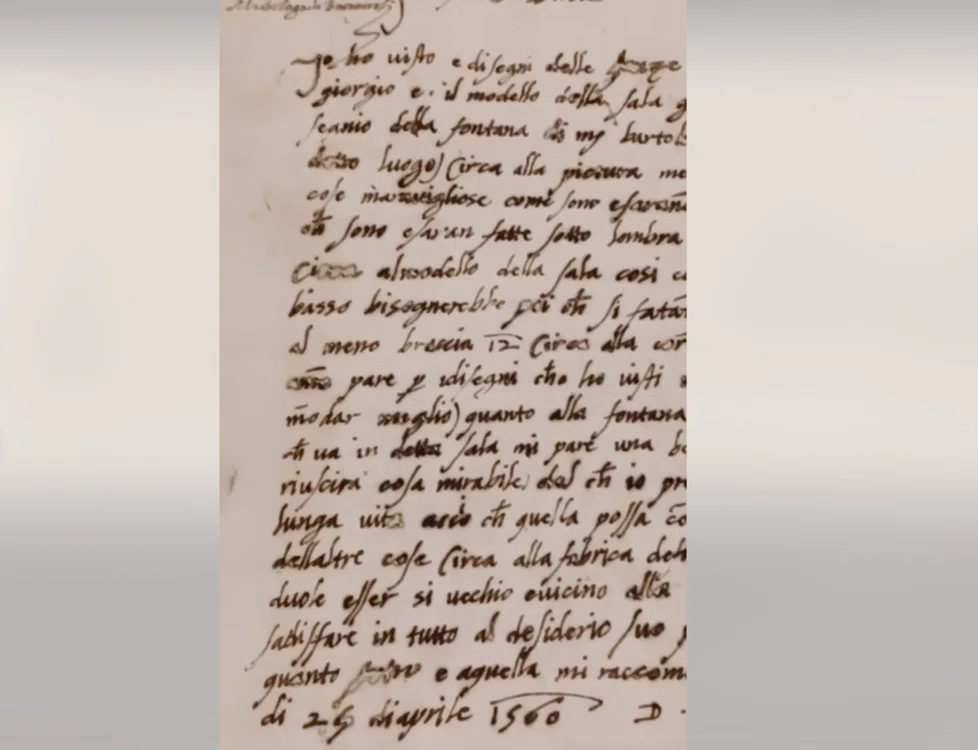 Io ho uisto e disegni delle
giorgio e il modello della sala g
scanio della fontana di mʒ bartol
detto luogo) Circa alla pictura me
cose marauigliose come sono esaranno
ch̄ sono esaran fatte sotto lombra
Circa almodello della sala cosi c
basso bisognerebbe poi ch̄ si fa tāta
al meno braccia 12 Circa alla cor
pare p̱ idisegni cho ho uisti
m̄odar meglio) quanto alla fontana
ch̄ ua in detta sala mi pare una be
riuscira cosa mirabile, del ch̄ io pr
lunga uita acio ch̄ quella possa cō
dellaltre cose Circa alla fabrica del
duole esser si uechio euicino alla
sadisffare in tutto al desiderio suo
quanto e aquella mi raccom
di 25 di aprile 1560 D